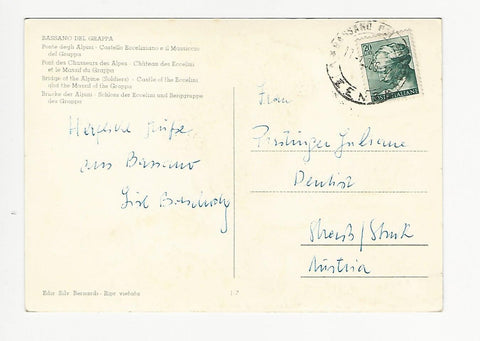 BASSANO DEL GRAPPA
Ponte degli Alpini - Castello Ecceliniano e il Massiccio
del Grappa
Pont des Chasseurs des Alpes - Château des Eccelini
et le Massif du Grappa
Bridge of the Alpine (Soldiers) - Castle of the Eccelini
and the Massif of the Grappa
Brücke der Alpini - Schloss der Eccelini und Berggruppe
des Grappa
BASSANO
20
POSTE ITALIANE
Herzliche Grüße
aus Bassano
Frau
Juliane
Dentist
Austria
Ediz. Edv. Bernardi - Ripr. vietata